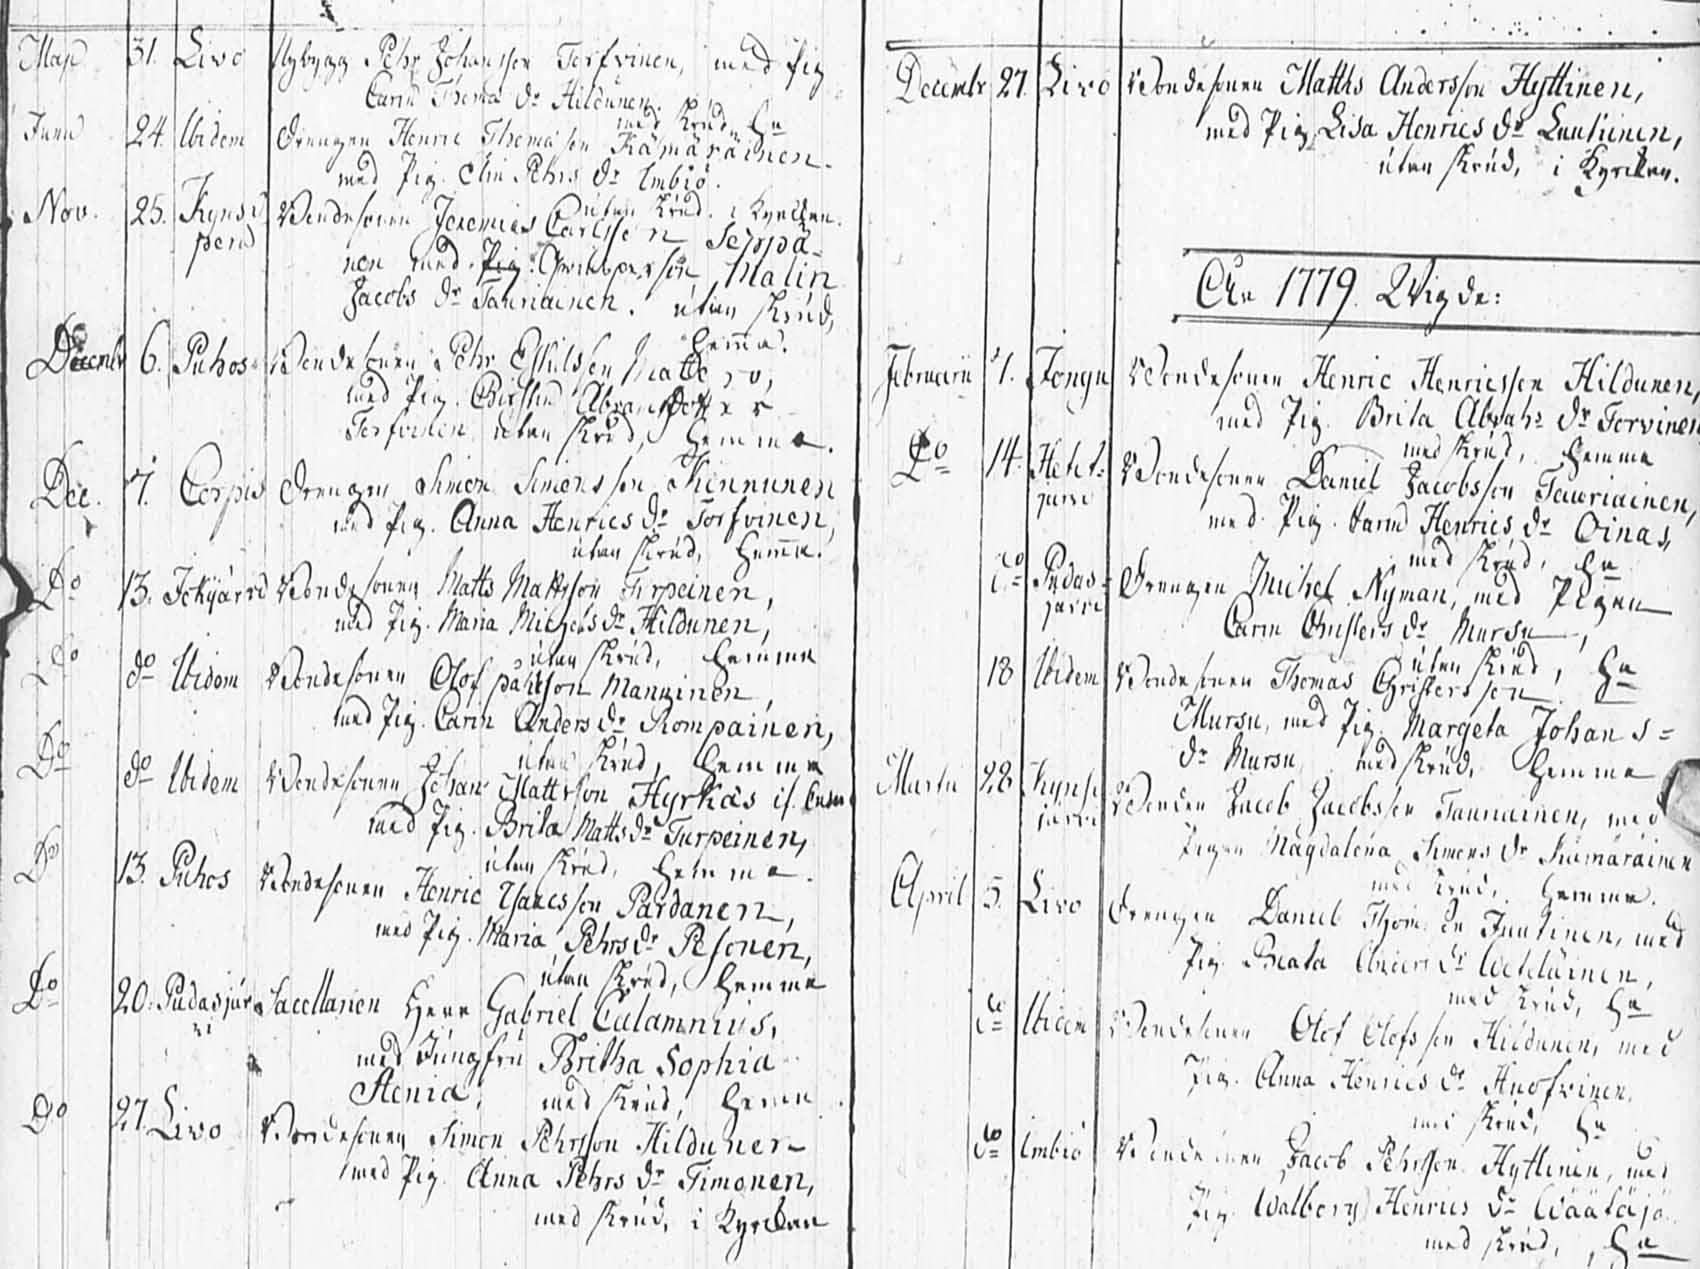 Maji 31. Livo Nybygg Pehr Johansson Torfvinen, med Pig
Carin Thomæ dr Hildunen.
med Krud, He
Junii 24. Ibidem Drengen Henric Thomæson Kämäräinen
med Pig. Elin Pehrs dr Imbiö.
utan Krud. i Kyrckan.
Nov. 25. Kynsi Bondesonen Jeremias Carlsson Seppä-
perä nen med Pig. Malin
Jacobs dr Tauriainen. utan Krud,
Hemma.
Decembr 6. Puhos Bondesonen Pehr Eskilsson Mattero,
med Pig. Christin Abramsdotter
Torfvinen utan Krud, Hemma.
Dec. 7. Corpis Drengen Simon Simonsson Kinnunen
med Pig. Anna Henrics dr Torfvinen,
utan Krud, Hemma.
Do 13. Jokijärvi Bondesonen Matts Mattsson Turpeinen,
med Pig. Maria Michels dr Hildunen,
utan Krud, Hemma
Do do Ibidem Bondesonen Olof Påhlsson Manninen,
med Pig. Carin Anders dr Rompainen,
utan Krud, Hemma
Do do Ibidem Bondesonen Johan Mattsson Hyrkäs
med Pig. Brita Matts dr Turpeinen,
utan Krud, Hemma.
Do 13. Puhos Bondesonen Henric Isacsson Pardanen,
med Pig. Maria Pehrs dr Pesonen,
utan Krud, Hemma
Do 20. Pudasjär Sacellanen Herr Gabriel Calamnius,
vi med Jungfru Britha Sophia
Stenia, med Krud, Hemm
Do 27. Livo Bondesonen Simon Pehrsson Hildunen
med Pig. Anna Pehrs dr Timonen,
med Krud, i Kyrckan
Decembr 27. Livo Bondesonen Matths Andersson Hyttinen,
med Pig. Lisa Henrics dr Luukinen,
utan Krud, i Kyrckan.
År 1779. Wigde:
Februarii 7. Jongu Bondesonen Henric Henricsson Hildunen,
med Pig. Brita Abrahs dr Torvinen
med Krud, Hemma
Do 14. Hetet= Bondesonen Daniel Jacobsson Tauriainen,
järvi med Pig. Carin Henrics dr Oinas,
med Krud, He
do Pudas= Drengen Michel Nyman, med Pigan
järvi Carin Christers dr Mursu,
utan Krud, He
18 Ibidem Bondesonen Thomas Christersson
Mursu, med Pig. Margeta Johans=
dr Mursu, med Krud, Hemma
Martii 28 Kynsi Bonden Jacob Jacobsson Tauriainen, med
järvi Pigan Magdalena Simons dr Kämäräinen
med Krud, Hemma.
April 5. Livo Drengen Daniel Thom. son Juutinen, med
Pig. Beata Anders dr
med Krud, He
do Ibidem Bondesonen Olof Olofsson Hildunen, med
Pig. Anna Henrics dr Knofvinen,
med Krud, He
do Imbiö Bondesonen Jacob Pehrsson Hyttinen, med
Pig. Walborg Henrics dr Wäätäjä.
med Krud, He